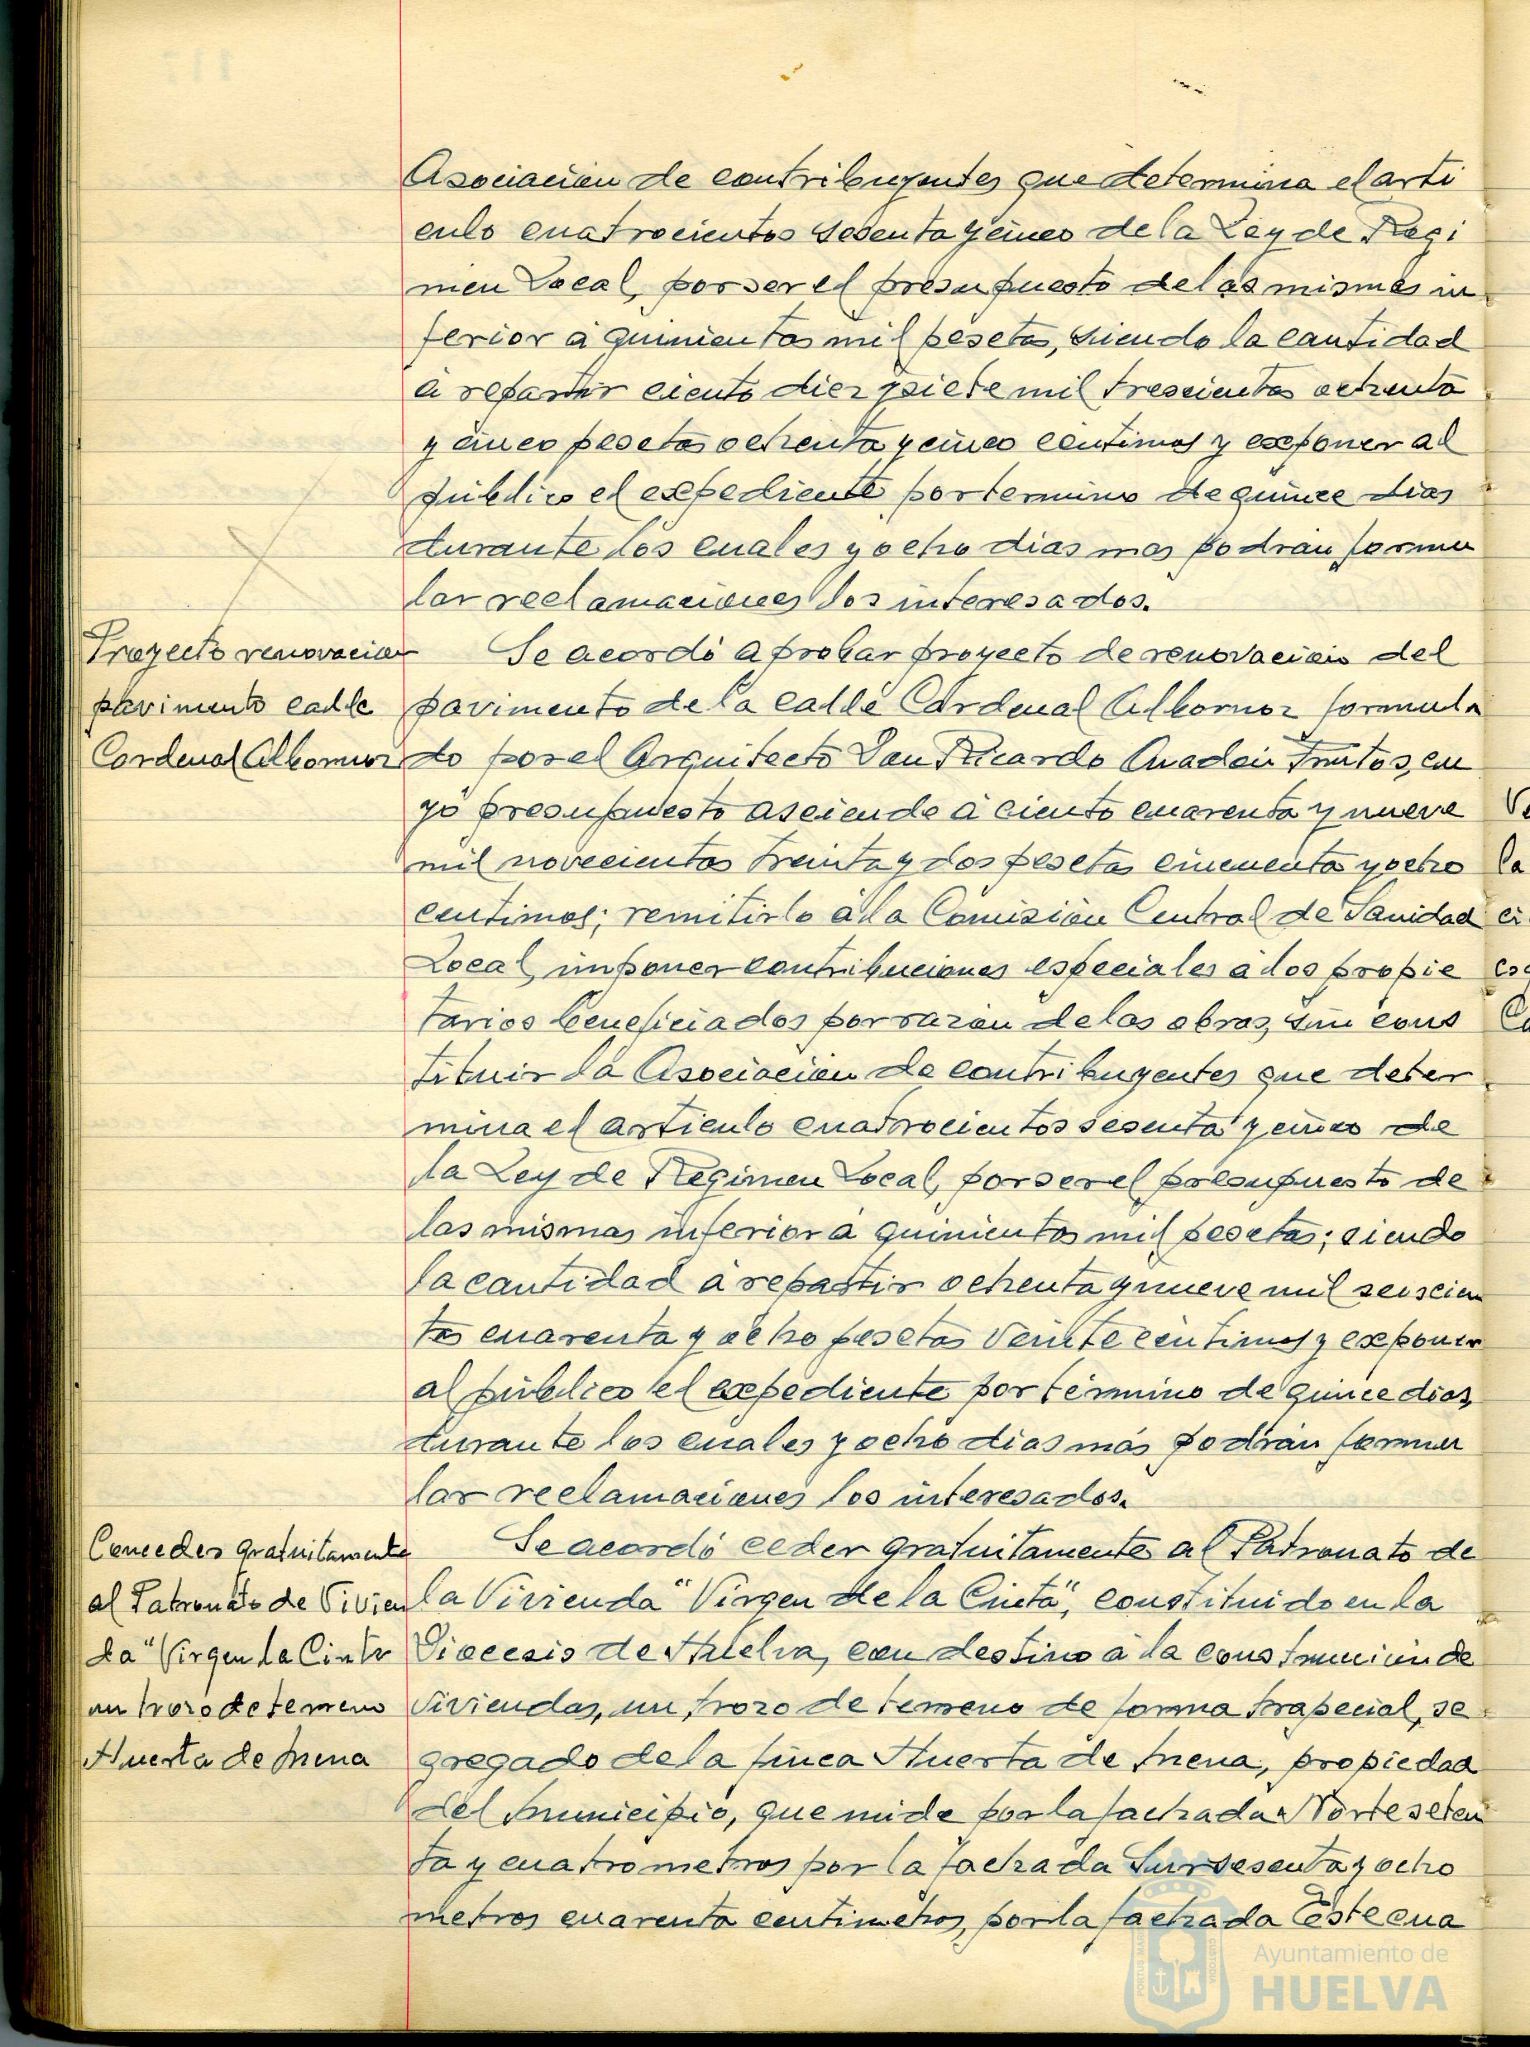 Asociacion de contribuyentes que determina el arti
culo cuatrocientos sesenta y cinco de la Ley de Regi
men Local, por ser el presupuesto de las mismas in
ferior á quinientas mil pesetas, siendo la cantidad
á repartir ciento diez y siete mil trescientas ochenta
y cinco pesetas ochenta y cinco centimos y exponer al
público el expediente por termino de quince dias
durante los cuales y ocho dias mas podrán formu
lar reclamaciones los interesados.
Proyecto renovacion
pavimento calle
Cardenal Albornoz
Se acordó aprobar proyecto de renovación del
pavimento de la calle Cardenal Albornoz formula
do por el Arquitecto Don Ricardo Anadón Frutos, cu
yo presupuesto asciende á ciento cuarenta y nueve
mil novecientas treinta y dos pesetas cincuenta y ocho
centimos; remitirlo á la Comisión Central de Sanidad
Local, imponer contribuciones especiales á los propie
tarios beneficiados por razón de las obras, sin cons
tituir la Asociación de contribuyentes que deter
mina el articulo cuatrocientos sesenta y cinco de
la Ley de Regimen Local, por ser el presupuesto de
las mismas inferior á quinientas mil pesetas; siendo
la cantidad á repartir ochenta y nueve mil seiscien
tas cuarenta y ocho pesetas veinte centimos y exponer
al público el expediente por término de quince dias,
durante los cuales y ocho dias más podrán formu
lar reclamaciones los interesados.
Conceder gratuitamente
al Patronato de Vivien
da "Virgen la Cinta
un trozo de terreno
Huerta de Mena
Se acordó ceder gratuitamente al Patronato de
la Vivienda "Virgen de la Cinta", constituido en la
Diocesis de Huelva, con destino á la construcción de
viviendas, un trozo de terreno de forma trapecial, se
gregado de la finca Huerta de Mena, propiedad
del Municipio, que mide por la fachada Norte seten
ta y cuatro metros por la fachada Sur sesenta y ocho
metros cuarenta centimetros, por la fachada Este cua
Ayuntamiento de
HUELVA